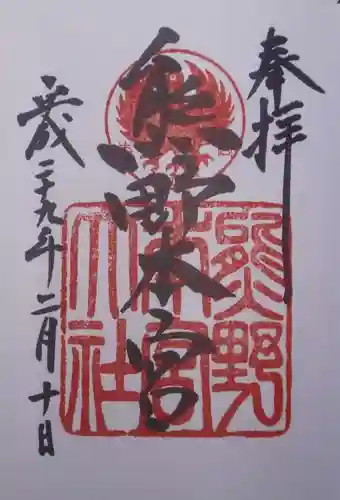 奉拝
熊野本宮
熊野
本宮
大社
平成二十九年二月十日